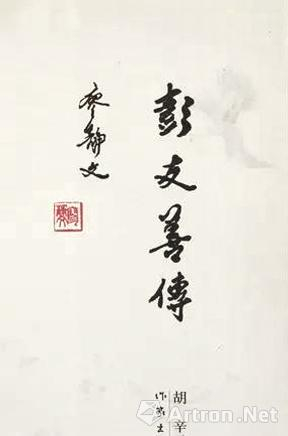 彭友善傳
廖静文
胡辛
作家出
Artron.Net